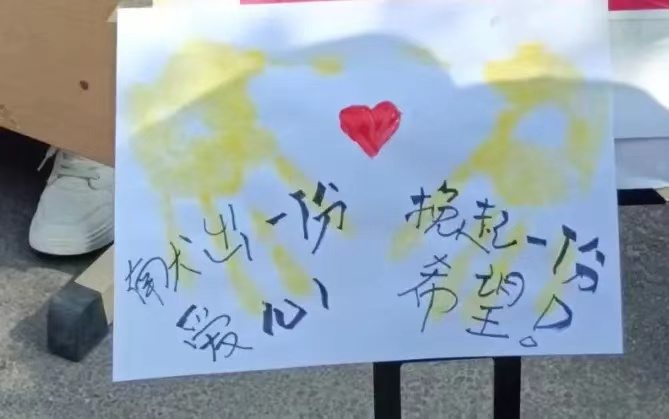 献出一份
爱心
挽起一份
希望！